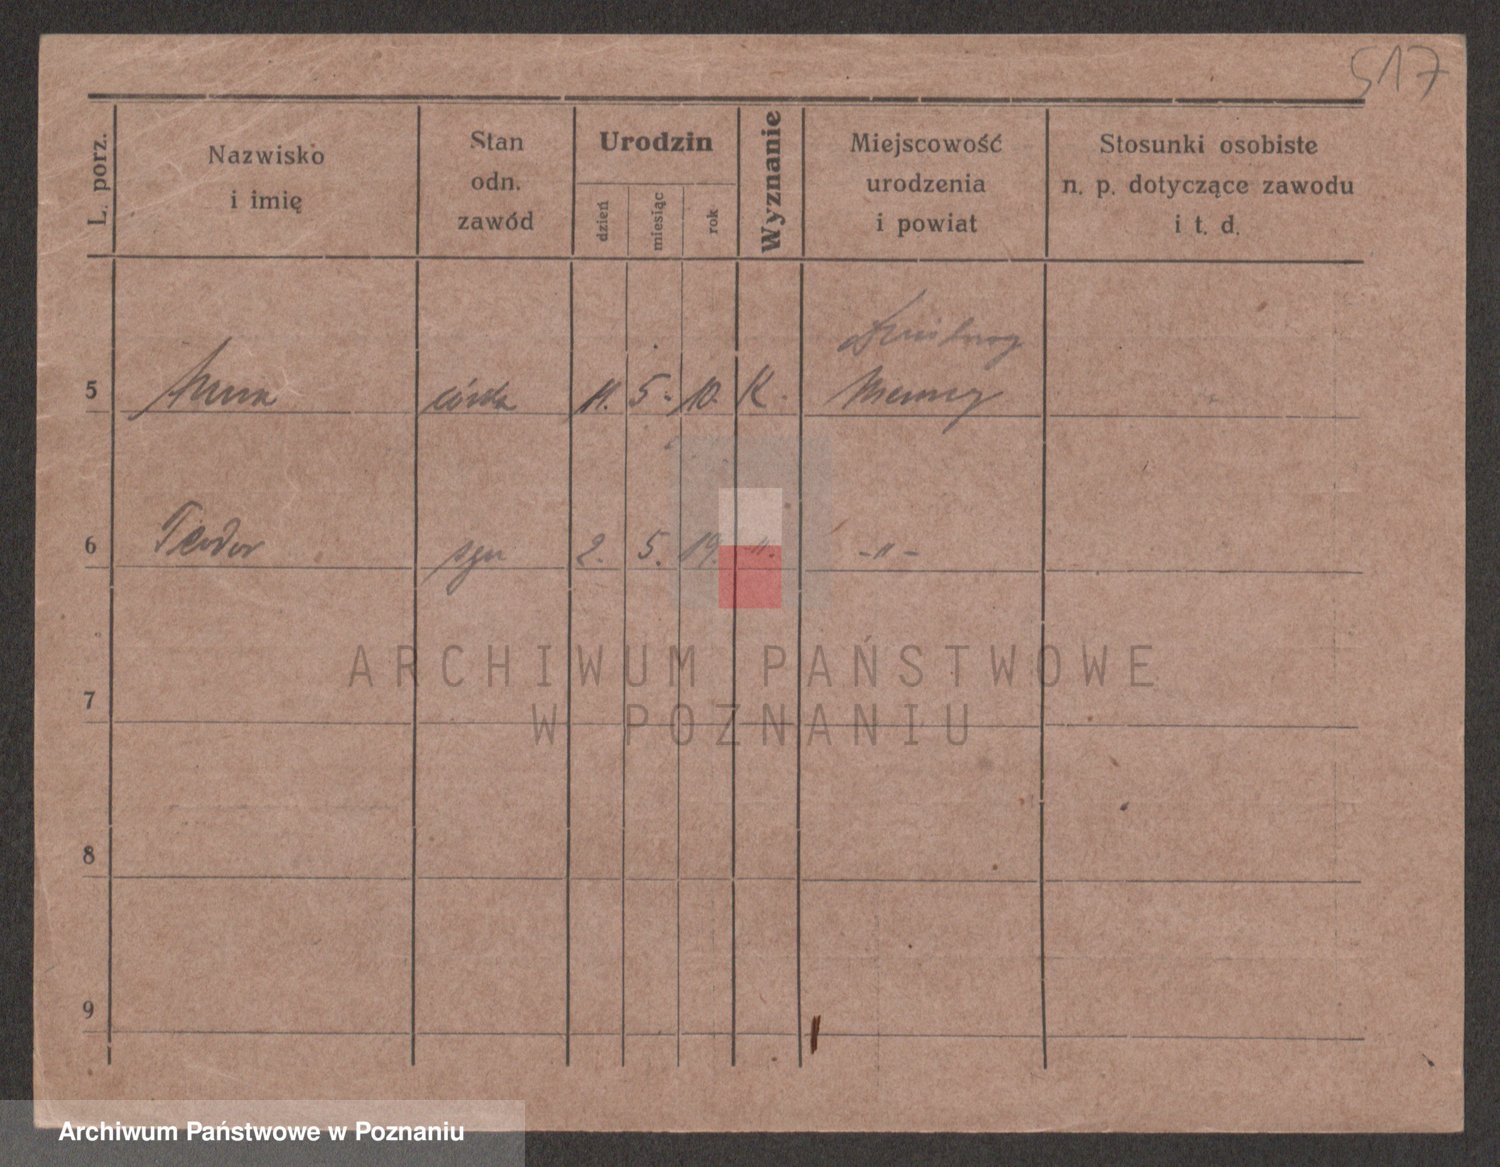 517
L. porz.
Nazwisko
i imię
Stan
odn.
zawód
Urodzin
dzień
miesiąc
rok
Wyznanie
Miejscowość
urodzenia
i powiat
Stosunki osobiste
n. p. dotyczące zawodu
i t. d.
5 Anna córka 11. 5. 10. K. Niemcy
6 Teodor syn 2. 5. 19. -"- -"-
7
8
9
ARCHIWUM PAŃSTWOWE
W POZNANIU
Archiwum Państwowe w Poznaniu